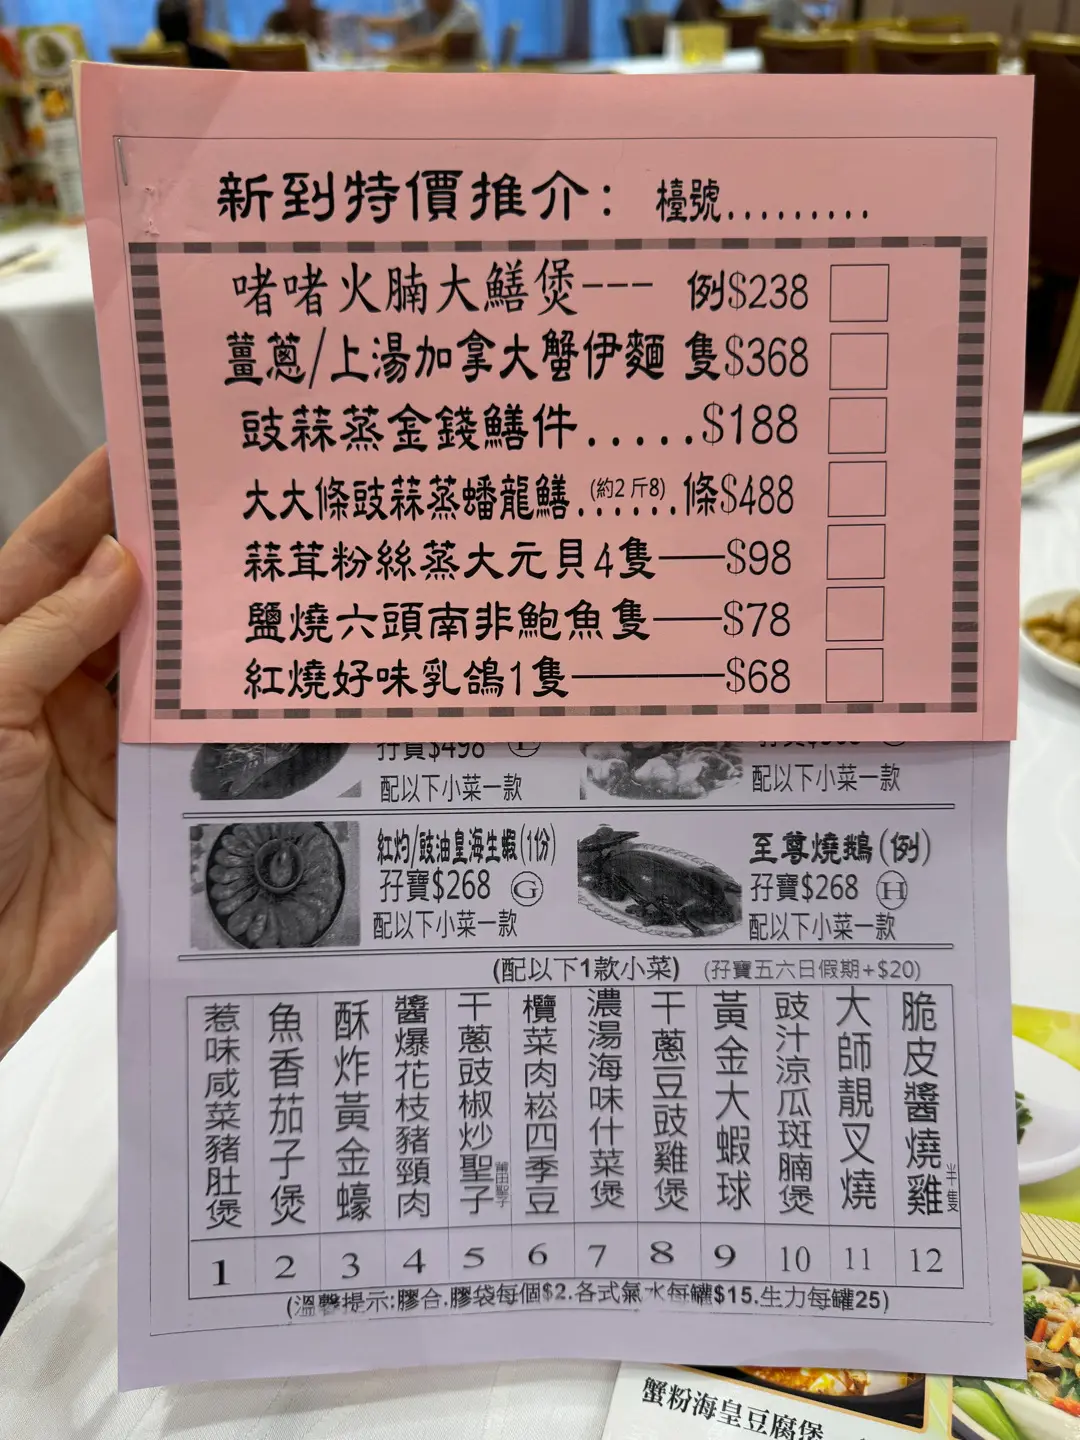 新到特價推介: 檯號.........
啫啫火腩大鱔煲--- 例$238
薑蔥/上湯加拿大蟹伊麵 隻$368
豉蒜蒸金錢鱔件.....$188
大大條豉蒜蒸蟠龍鱔(約2斤8)......條$488
蒜茸粉絲蒸大元貝4隻——$98
鹽燒六頭南非鮑魚隻——$78
紅燒好味乳鴿1隻————$68
孖寶$498
配以下小菜一款
配以下小菜一款
紅灼/豉油皇海生蝦(1份)
孖寶$268 Ⓖ
配以下小菜一款
至尊燒鵝(例)
孖寶$268 Ⓗ
配以下小菜一款
(配以下1款小菜) (孖寶五六日假期+$20)
惹味咸菜豬肚煲
魚香茄子煲
酥炸黃金蠔
醬爆花枝豬頸肉
干蔥豉椒炒聖子
欖菜肉崧四季豆
濃湯海味什菜煲
干蔥豆豉雞煲
黃金大蝦球
豉汁涼瓜斑腩煲
大師靚叉燒
脆皮醬燒雞半隻
1 2 3 4 5 6 7 8 9 10 11 12
(溫馨提示:膠合.膠袋每個$2.各式氣水每罐$15.生力每罐25)
蟹粉海皇豆腐煲